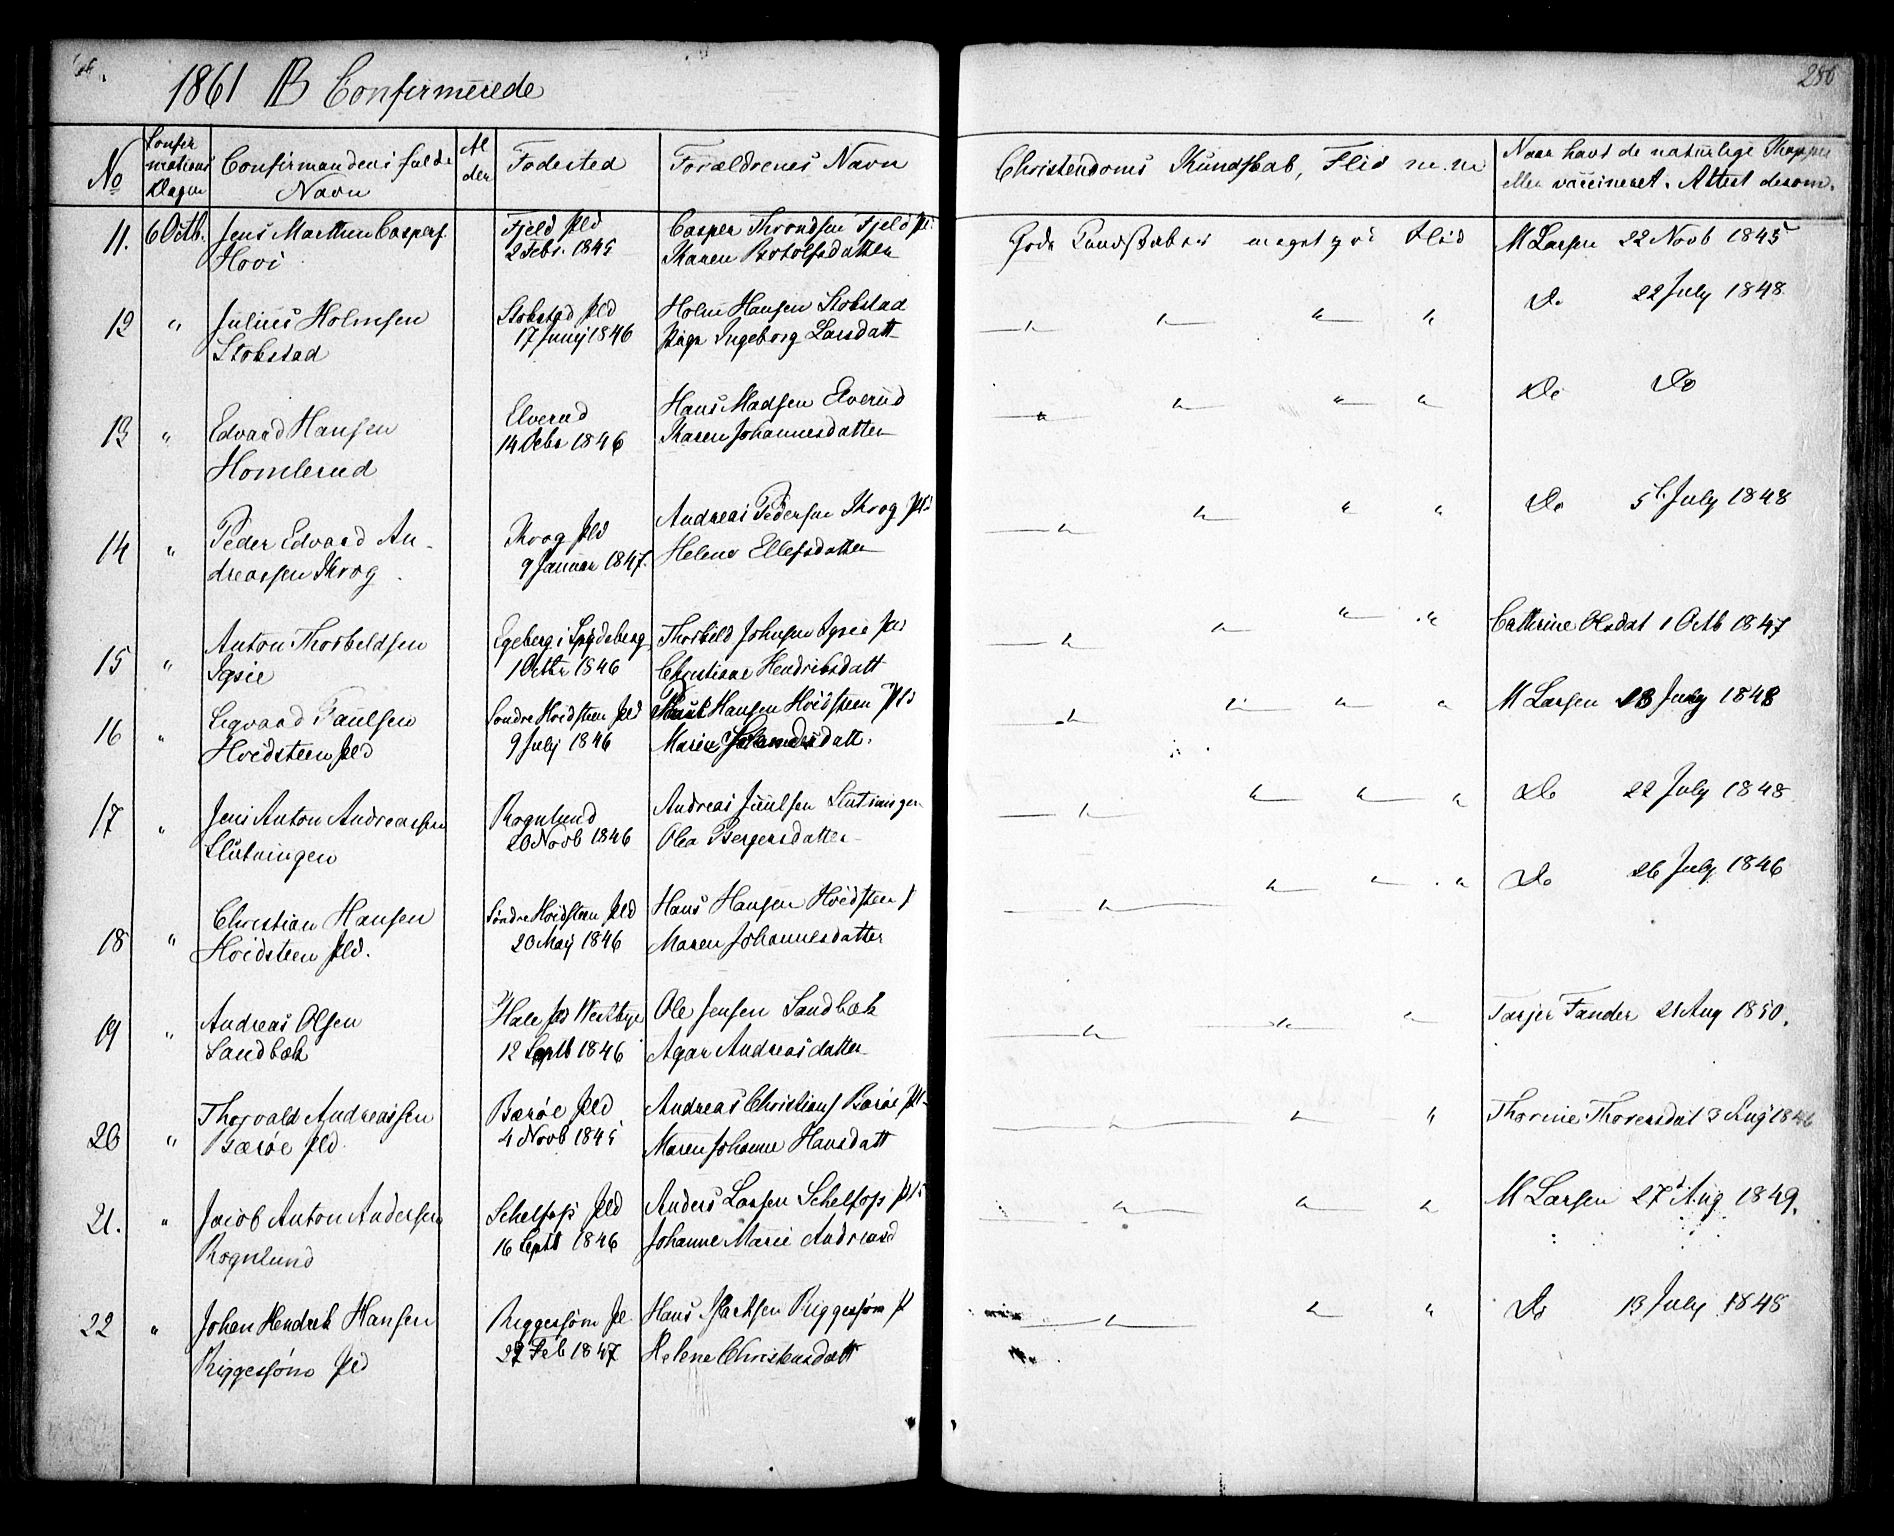 1861 B Confirmerede
286
No
Confir
mations
Dagen
Confirmandens fulde
Navn
Al
der
Fødested
Forældrenes Navn
Christendoms Kundskab, Flid m.m
Naar havt de naturlige Kopper
eller vaccineret. Attest desom.
11. 6 Octb. Jens Marthin Caspers.
Hovi
Fjeld Pld
2 Febr. 1845
Casper Throndsen Fjeld Pl:
Karen Botolfsdatter
Gode Kundskaber meget god Flid
M Larsen 22 Novb 1845
12 " Julius Holmsen
Stokstad
Stokstad Pld
17 Juny 1846
Holm Hansen Stokstad
Ingeborg Larsdatt
Do 22 July 1848
13 " Edvard Hansen
Homlerud
Elverud
14 Debr 1846
Hans Madsen Elverud
Karen Johannesdatter
Do Do
14 " Peder Edvard An-
dreassen Krog
Krog Pld
9 Januar 1847.
Andreas Pedersen Krog Pl
Helene Ellefsdatter
Do 5 July 1848
15 " Anton Thorkeldsen
Igsie
Egeberg i Spydeberg
1 Octbr 1846
Thorkild Johnsen Igsie Pld
Christiane Hendriksdatt
Cathrine Olsdat 1 Octb 1847
16 " Sigvard Paulsen
Hvidsteen Pld
Søndre Hvidsteen Pld
9 July 1846
Paul Hansen Hvidsteen Pld
Maria datt.
M Larsen 13 July 1848
17 " Jens Anton Andreassen
Slutningen
Rognlund
20 Novb 1846
Andreas Juulsen Slutningen
Olea Bergersdatter
Do 22 July 1848
18 " Christian Hansen
Hvidsteen Pld.
Søndre Hvidsteen Pld
20 May 1846
Hans Hansen Hvidsteen P
Maren Johannesdatter
Do 26 July 1846
19 " Andreas Olsen
Sandbæk
Hale Pld Westbye
12 Septb 1846
Ole Jensen Sandbæk
Agar Andreasdatter
Tarjer Fander 21 Aug 1850.
20 " Thorvald Andreassen
Bærøe Pld.
Bærøe Pld
4 Novb 1845
Andreas Christians Bærøe Pl
Maren Johanne Hansdatt
Thorine Thorersdat 3 Aug 1846
21. " Jacob Anton Andersen
Rognlund
Schelfos Pld
16 Septb 1846
Anders Larsen Schelfos Pld
Johanne Marie Andreasd
M Larsen 27 Aug 1849.
22 " Johan Hendrik Hansen
Riggesjøno Pld
Riggesjøm Pl.
27 Feb 1847
Hans Riggesjøm P
Helene Christensdatt
Do 13 July 1848